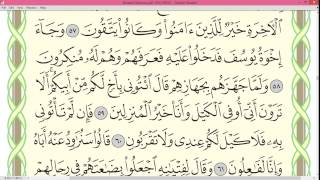 ٱلْءَاخِرَةِ خَيْرٌ لِّلَّذِينَ ءَامَنُوا۟ وَكَانُوا۟ يَتَّقُونَ ٥٧ وَجَآءَ
إِخْوَةُ يُوسُفَ فَدَخَلُوا۟ عَلَيْهِ فَعَرَفَهُمْ وَهُمْ لَهُۥ مُنكِرُونَ
٥٨ وَلَمَّا جَهَّزَهُم بِجَهَازِهِمْ قَالَ ٱئْتُونِى بِأَخٍ لَّكُم مِّنْ أَبِيكُمْ أَلَا
تَرَوْنَ أَنِّىٓ أُوفِى ٱلْكَيْلَ وَأَنَا۠ خَيْرُ ٱلْمُنزِلِينَ ٥٩ فَإِن لَّمْ تَأْتُونِى
بِهِۦ فَلَا كَيْلَ لَكُمْ عِندِى وَلَا تَقْرَبُونِ ٦٠ قَالُوا۟ سَنُرَٰوِدُ عَنْهُ أَبَاهُ
وَإِنَّا لَفَٰعِلُونَ ٦١ وَقَالَ لِفِتْيَٰنِهِ ٱجْعَلُوا۟ بِضَٰعَتَهُمْ فِى رِحَالِهِمْ